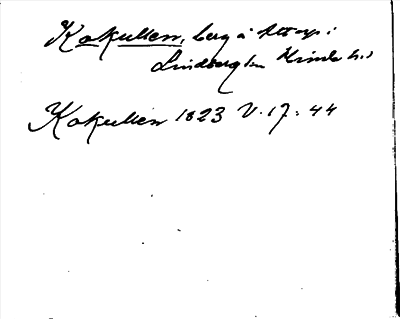 Kokullen, berg å Attarp i
Lindberg sn Himle hd
Kokullen 1823 V. 17: 44